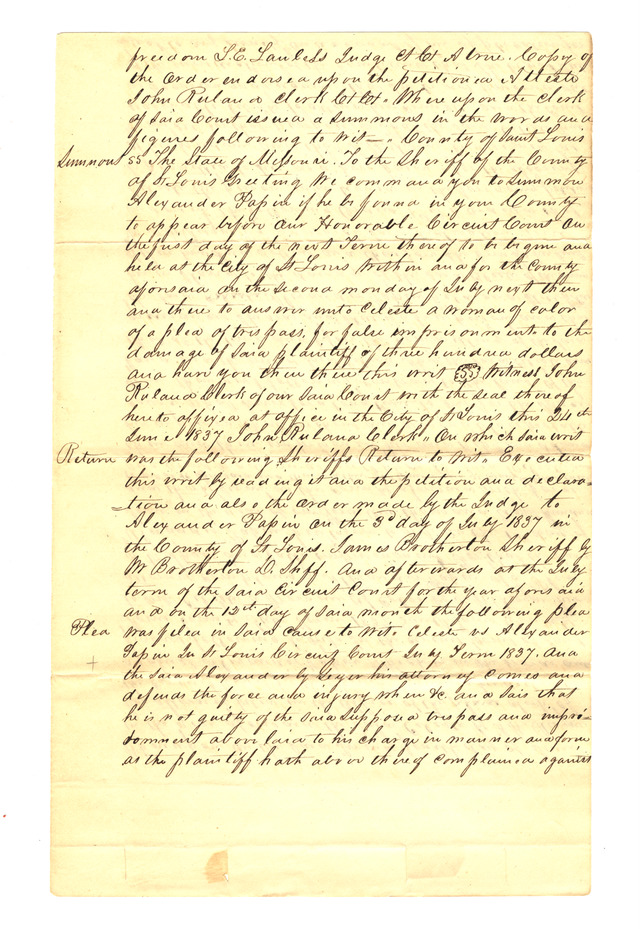 freedom L. E. Lawless Judge Ct Ct A true Copy of
the order endorsed upon the petition Attest
John Ruland Clerk Ct Ct. Where upon the Clerk
of Said Court issued a Summons in the words and
figures following to Wit — County of Saint Louis
Summons ss The State of Missouri. To the Sheriff of the County
of St Louis Greeting We command you to Summon
Alexander Papin if he be found in your County
to appear before our Honorable Circuit Court on
the first day of the next Term thereof to be begun and
held at the city of St Louis within and for the County
aforesaid on the second monday of July next then
and there to answer unto Celeste a woman of color
of a plea of trespass, for false imprisonment to the
damage of said plaintiff of three hundred dollars
and have you then there this writ Witness John
Ruland Clerk of our Said Court with the Seal there of
here to affixed at office in the City of St Louis this 24th
June 1837 John Ruland Clerk " On which Said writ
Return was the following Sheriffs Return to Wit " Executed
this writ by reading it and the petition and declara-
-tion and also the order made by the Judge to
Alexander Papin on the 3d day of July 1837 in
the County of St Louis. James Brotherton Sheriff by
W Brotherton D. Shff. And afterwards at the July
term of the Said Circuit Court for the year aforesaid
and on the 12th day of Said month the following plea
Plea was filed in Said cause to Wit " Celeste vs Alexander
Papin In St Louis Circuit Court July Term 1837. And
the Said Alexander by Geyer his attorney comes and
defends the force and injury when &c. and Sais that
he is not guilty of the Said Supposed trespass and impri-
sonment above laid to his charge in manner and form
as the plaintiff hath above there of complained against